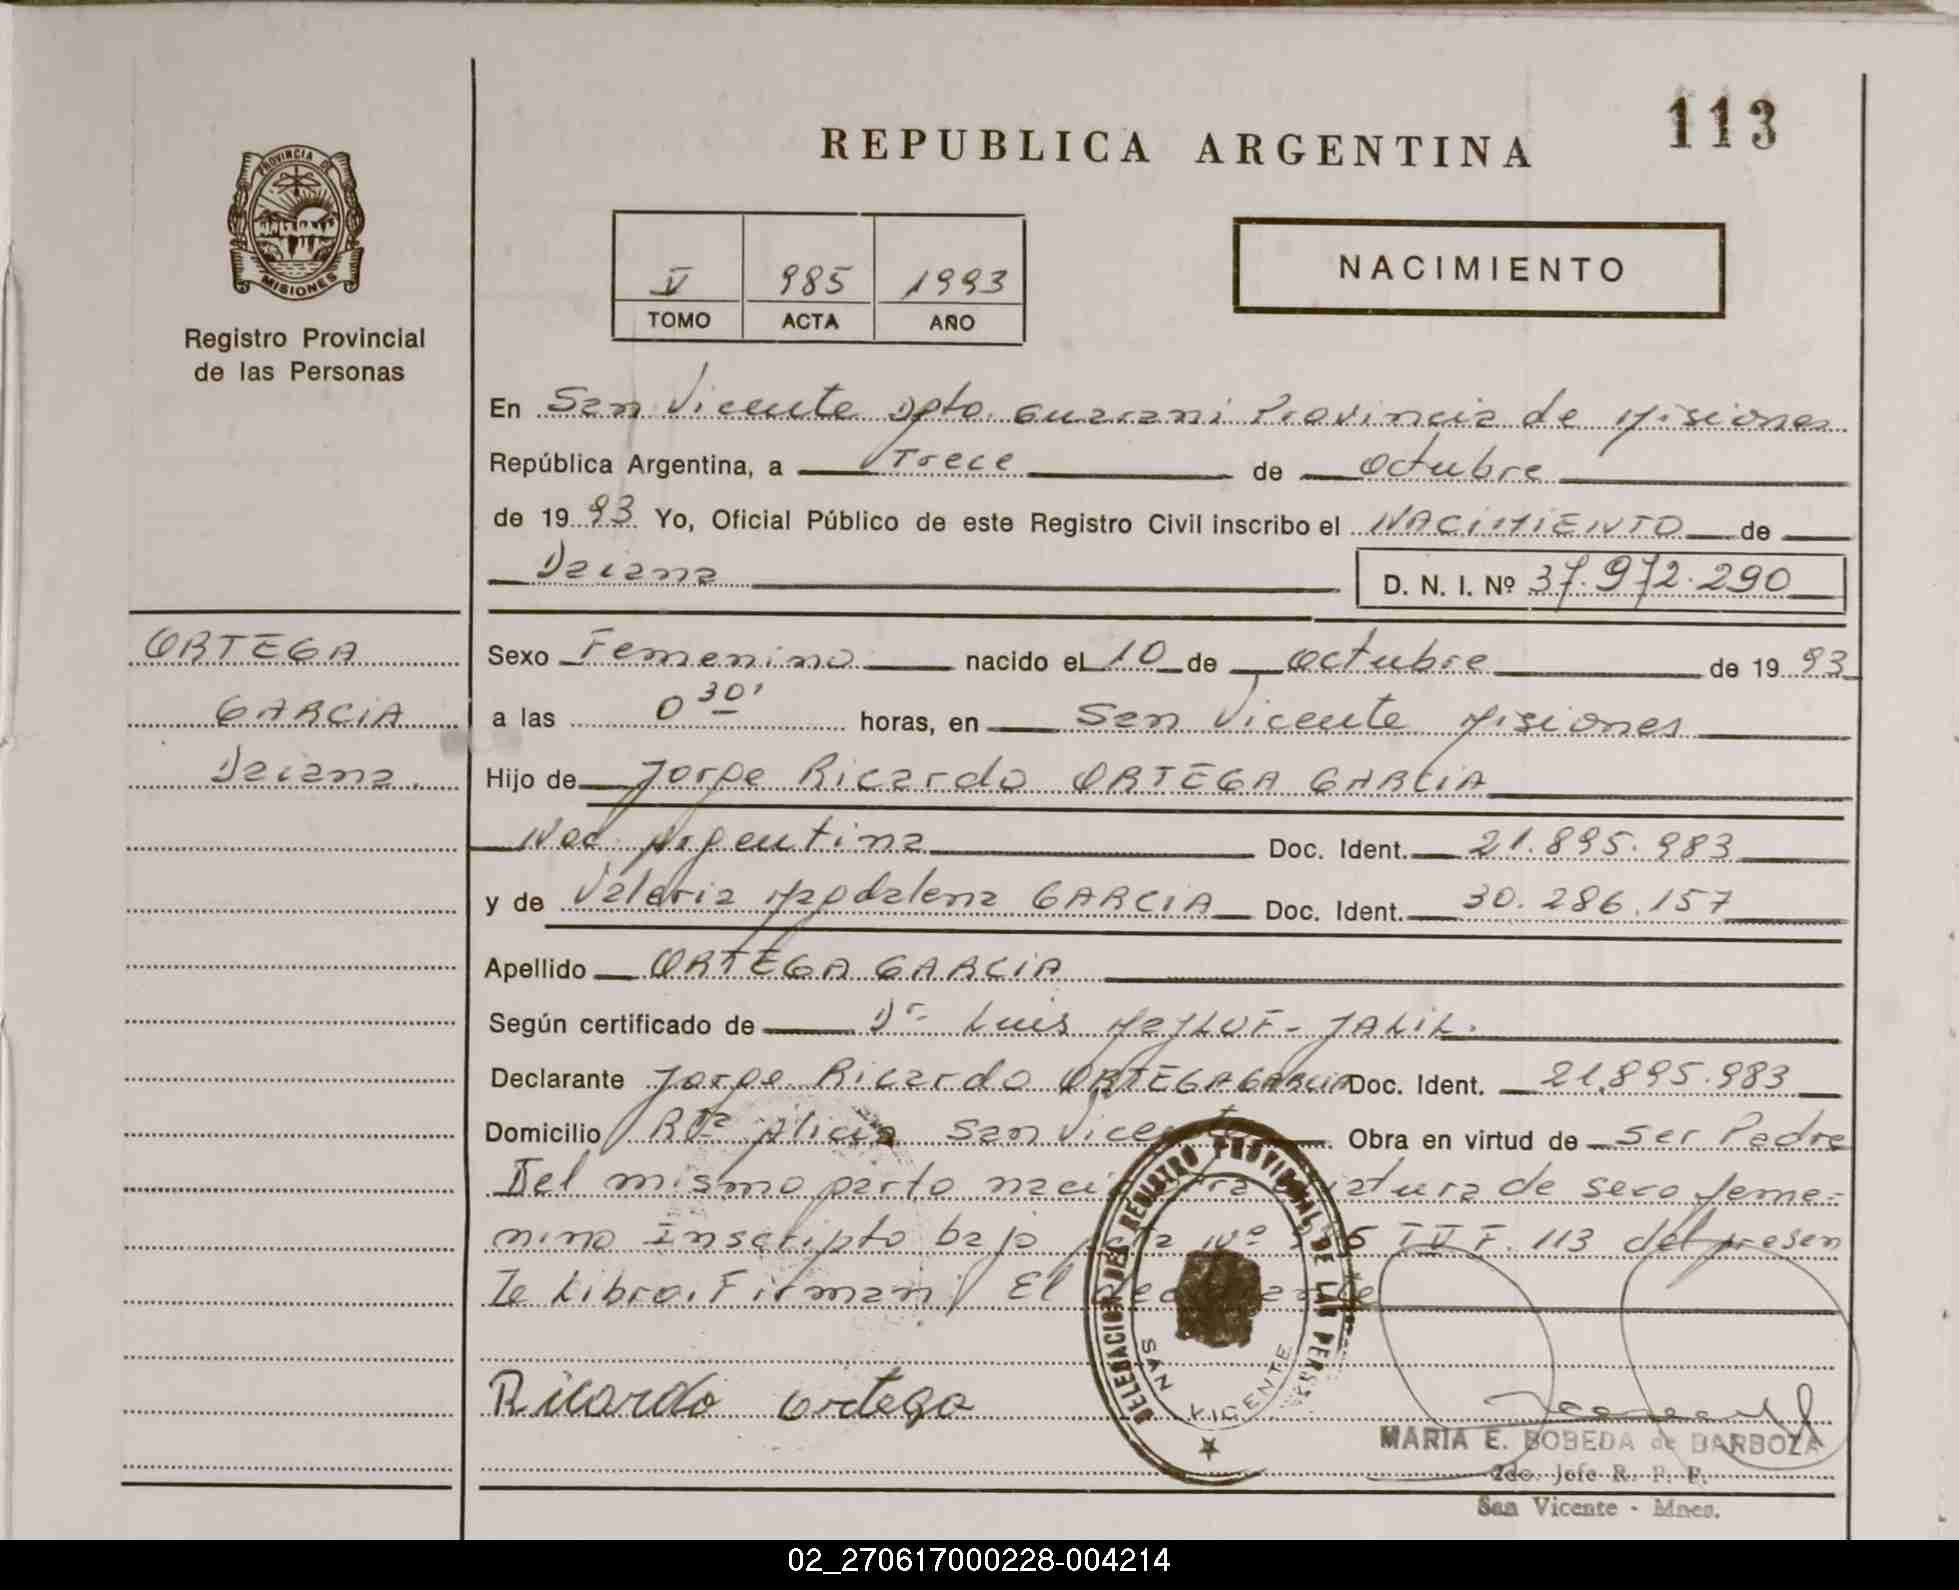 113
REPUBLICA ARGENTINA
PROVINCIA DE MISIONES
Registro Provincial
de las Personas
V 985 1993
TOMO ACTA AÑO
NACIMIENTO
En San Vicente Dpto. Guarani Provincia de Misiones
República Argentina, a Trece de octubre
de 1993 Yo, Oficial Público de este Registro Civil inscribo el NACIMIENTO de
Daiana D. N. I. Nº 37.972.290
ORTEGA
GARCIA
Daiana.
Sexo Femenino nacido el 10 de octubre de 1993
a las 0 30' horas, en San Vicente Misiones
Hijo de Jorge Ricardo ORTEGA GARCIA
Nac. Argentina Doc. Ident. 21.895.983
y de Valeria Magdalena GARCIA Doc. Ident. 30.286.157
Apellido ORTEGA GARCIA
Según certificado de Dr. Luis JALIL.
Declarante Jorge Ricardo ORTEGA GARCIA Doc. Ident. 21.895.983
Domicilio Alicia San Vicente. Obra en virtud de ser Padre
Del mismo parto de sexo feme-
nino Inscripto bajo Nº F. 113 del presen
te Libro. Firman: El
Ricardo Ortega
DELEGACION DEL REGISTRO PROVINCIAL DE LAS PERS
SAN VICENTE
MARIA E. BOBEDA de BARBOZA
2do. Jefe R. P. P.
San Vicente - Mnes.
02_270617000228-004214